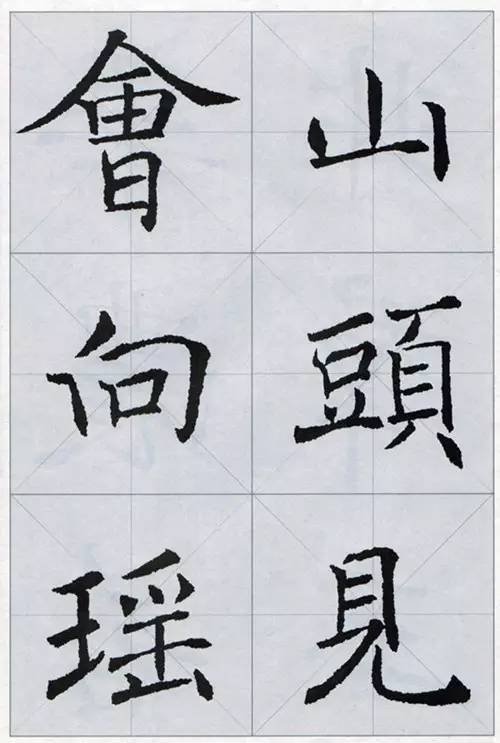 山頭見
會向瑶